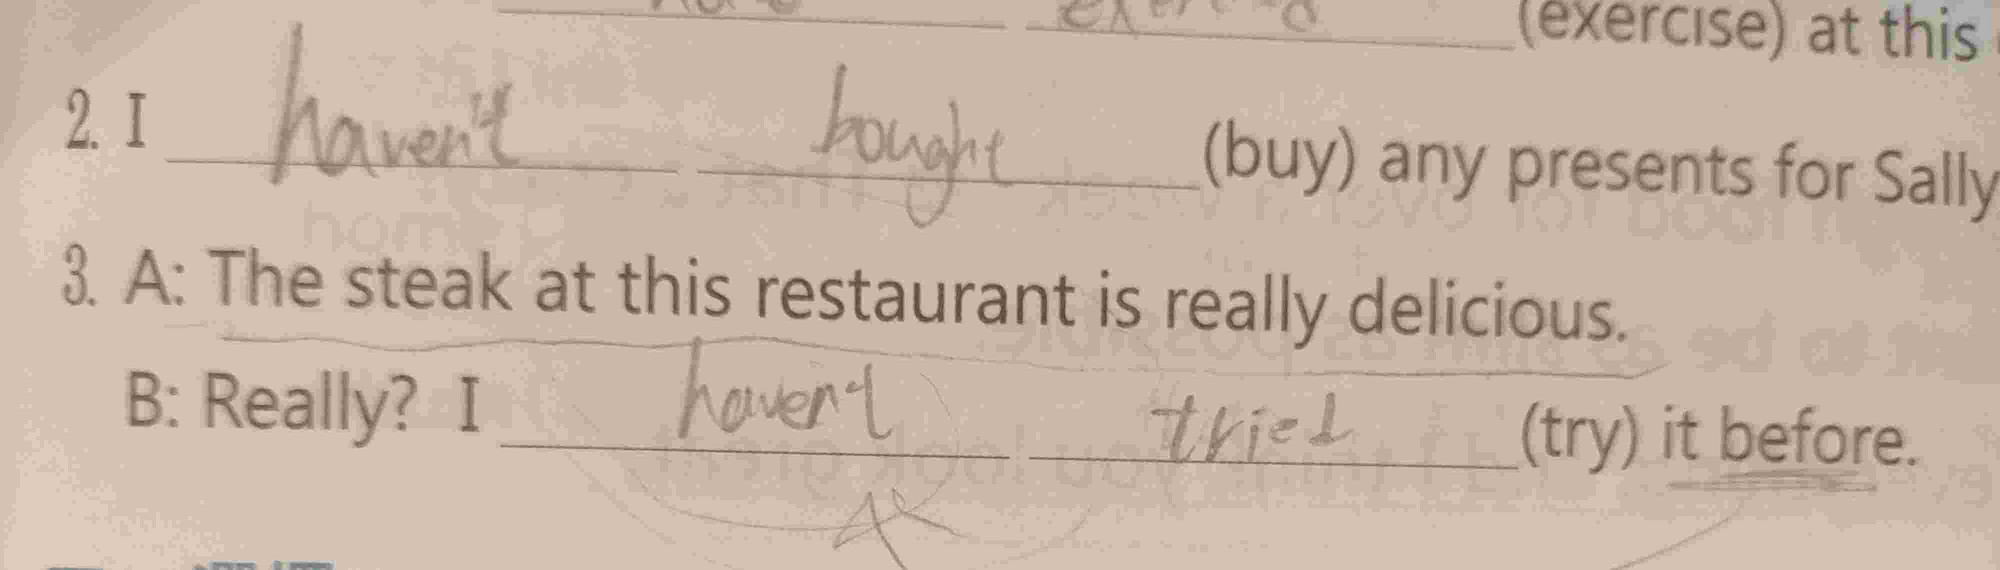 (exercise) at this
2. I haven't bought (buy) any presents for Sally
3. A: The steak at this restaurant is really delicious.
B: Really? I haven't tried (try) it before.